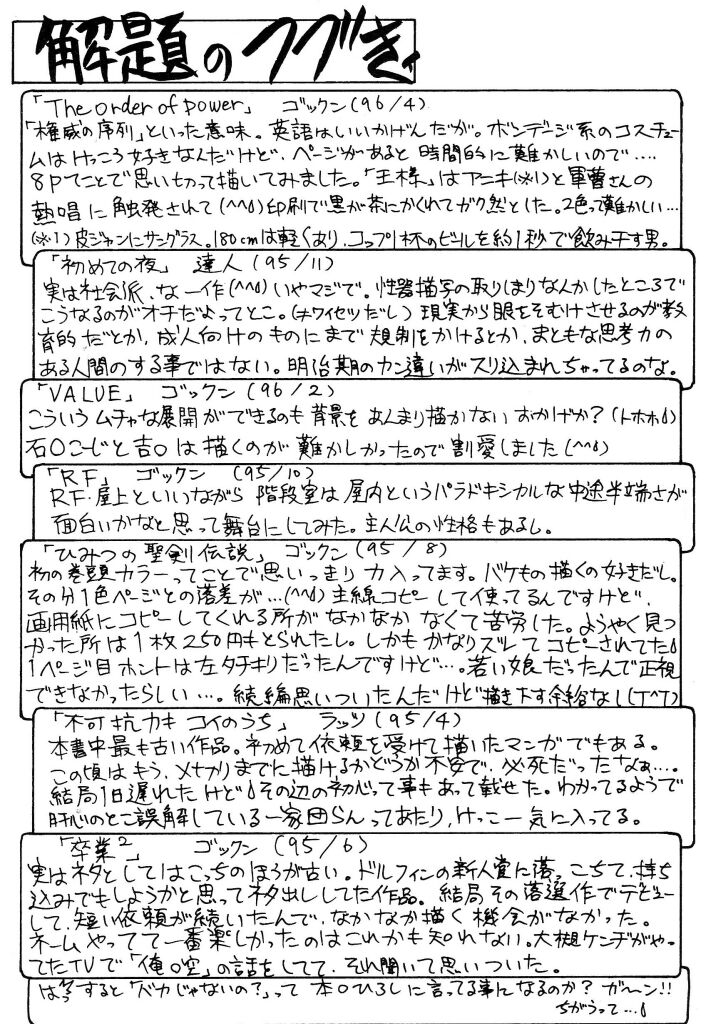 解題のつづき
「The order of power」 ゴックン(96/4)
「権威の序列」といった意味。英語はいいかげんだが。ボンデージ系のコスチュー
ムはけっこう好きなんだけど、ページがあると時間的に難かしいので‥‥
8Pてことで思い切って描いてみました。「王様」はアニキ(※1)と軍曹さんの
熱唱に触発されて(^^;)印刷で黒が茶にかくれてガク然とした。2色って難かしい…
(※1)皮ジャンにサングラス。180cmは軽くあり、コップ1杯のビールを約1秒で飲み干す男。
「初めての夜」 達人(95/11)
実は社会派、な一作(^^;)いやマジで。性器描写の取りしまりなんかしたところで
こうなるのがオチだよってとこ。(チワイセツだし)現実から眼をそむけさせるのが教
育的だとか、成人向けのものにまで規制をかけるとか、まともな思考力の
ある人間のする事ではない。明治期のカン違いがスリ込まれちゃってるのな。
「VALUE」 ゴックン(96/2)
こういうムチャな展開ができるのも背景をあんまり描かないおかげか?(トホホ;)
石〇こーじと吉〇は描くのが難かしかったので割愛しました(^^;)
「RF」 ゴックン (95/10)
RF・屋上といいながら階段室は屋内というパラドキシカルな中途半端さが
面白いかなと思って舞台にしてみた。主人公の性格もあるし。
「ひみつの聖剣伝説」 ゴックン(95/8)
初の巻頭カラーってことで思いっきり力入ってます。バケもの描くの好きだし。
その分1色ページとの落差が…(^^;)主線コピーして使ってるんですけど、
画用紙にコピーしてくれる所がなかなかなくて苦労した。ようやく見つ
かった所は1枚250円もとられたし。しかもかなりズレてコピーされてた;
1ページ目ホントは左タチキリだったんですけど…。若い娘だったんで正視
できなかったらしい…。続編思いついたんだけど描き下す余裕なし(T^T)
「不可抗力もコイのうち」 ラッツ(95/4)
本書中最も古い作品。初めて依頼を受けて描いたマンガでもある。
この頃はもう、〆切りまでに描けるかどうか不安で、必死だったなぁ…。
結局1日遅れたけど;その辺の初心って事もあって載せた。わかってるようで
肝心のとこ誤解している一家団らんってあたり、けっこー気に入ってる。
「卒業²」 ゴックン(95/6)
実はネタとしてはこっちのほうが古い。ドルフィンの新人賞に落っこちて、持ち
込みでもしようかと思ってネタ出ししてた作品。結局その落選作でデビュー
して、短い依頼が続いたんで、なかなか描く機会がなかった。
ネームやってて一番楽しかったのはこれかも知れない。大槻ケンヂがや
ってたTVで「俺〇空」の話をしてて、それ聞いて思いついた。
すると「バカじゃないの?」って本〇ひろしに言ってる事になるのか?ガ〜ン!!
ちがうって…;